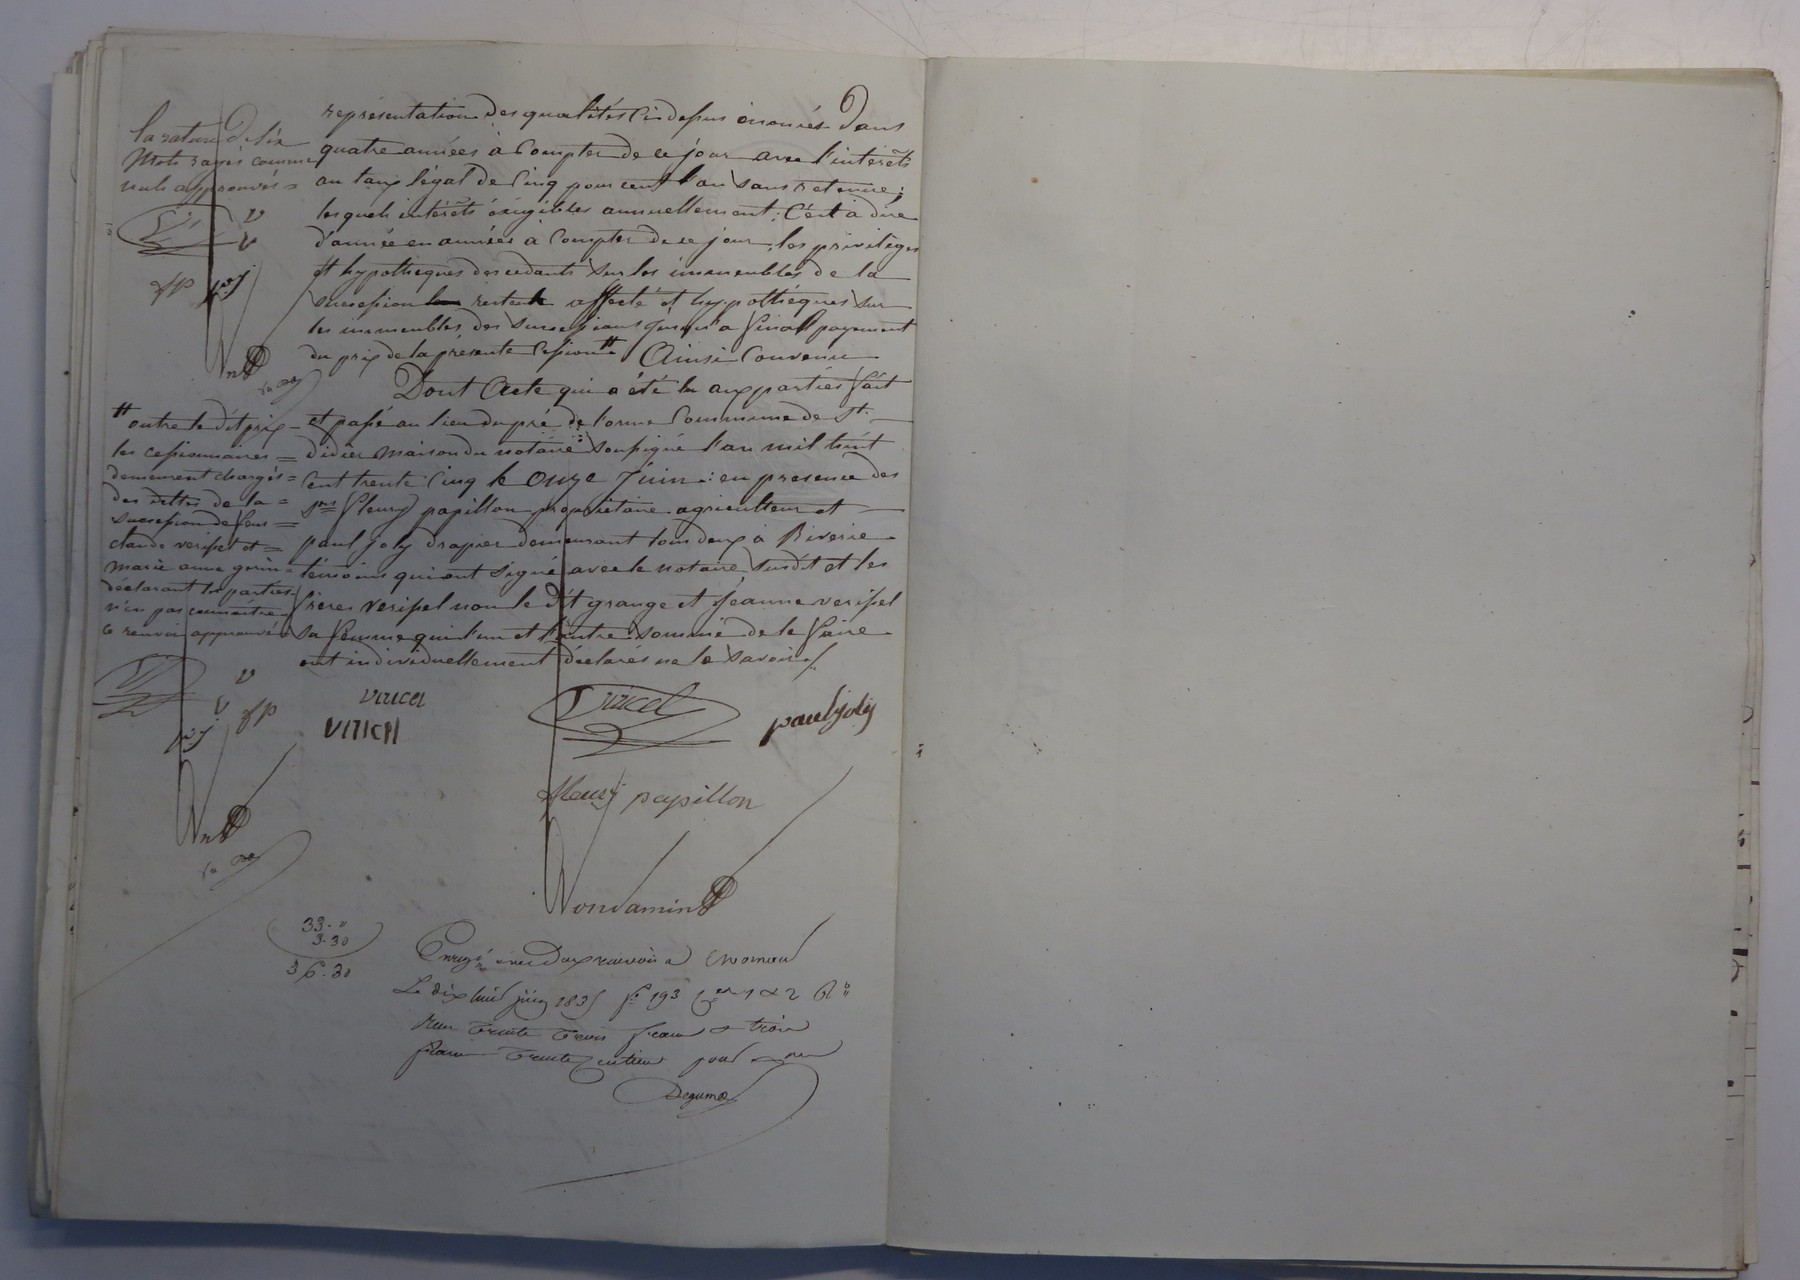 la rature de six
mots rayés comme
nuls approuvés =
V
V
fp pj
représentation des qualités ci depus énoncées dans
quatre années à Compter de ce jour avec l'intérêts
au taux légal de Cinq pour cent l'an sans retenue;
lesquels intérêts éxigibles annuellement; C'est a dire
d'année en années à Compter de ce jour, les privilèges
et hypotheques des cedants sur les immeubles de la
succession restent affecté et hypothéques sur
les immeubles des successions jusqu'a final payement
du prix de la présente Cession # Ainsi Convenu
Dont Acte qui a été lu aux parties fait
et passé au lieu du pré de l'orme Commune de St.
didier maison du notaire soussigné l'an mil huit
cent trente Cinq le Onze Juin: en presence des
srs fleury papillon propriétaire agriculteur et
paul joly drapier demeurant tous deux à Riverie
témoins qui ont signé avec le notaire susdit et les
frères verissel non le dit grange et Jeanne verissel
sa femme qui l'un et l'autre sommé de le faire
ont individuellement déclarés ne le savoir
# outre le dit prix
les cessionnaires =
demeurent chargés =
des dettes de la =
succession de feus =
claude verissel et =
marie anne
déclarant les parties
n'en pas connaitre
ce renvoi approuvé
V
V fp
pj
VIRICEL
Viricel
pauljoly
fleury papillon
Vondamin
33. "
3. 30
36. 30
Enregé avec Deux renvois a
Le dix huit juin 1835 fo 193 1 & 2
reçu Trente Trois francs & trois
francs Trente centimes pour